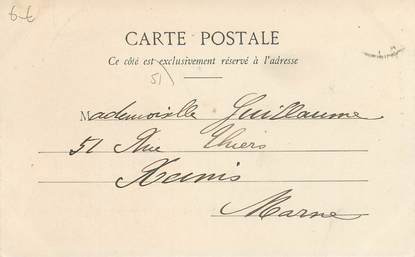 6-€
CARTE POSTALE
Ce côté est exclusivement réservé à l'adresse
51
Mademoiselle Guillaume
51 Rue Thiers
Marne